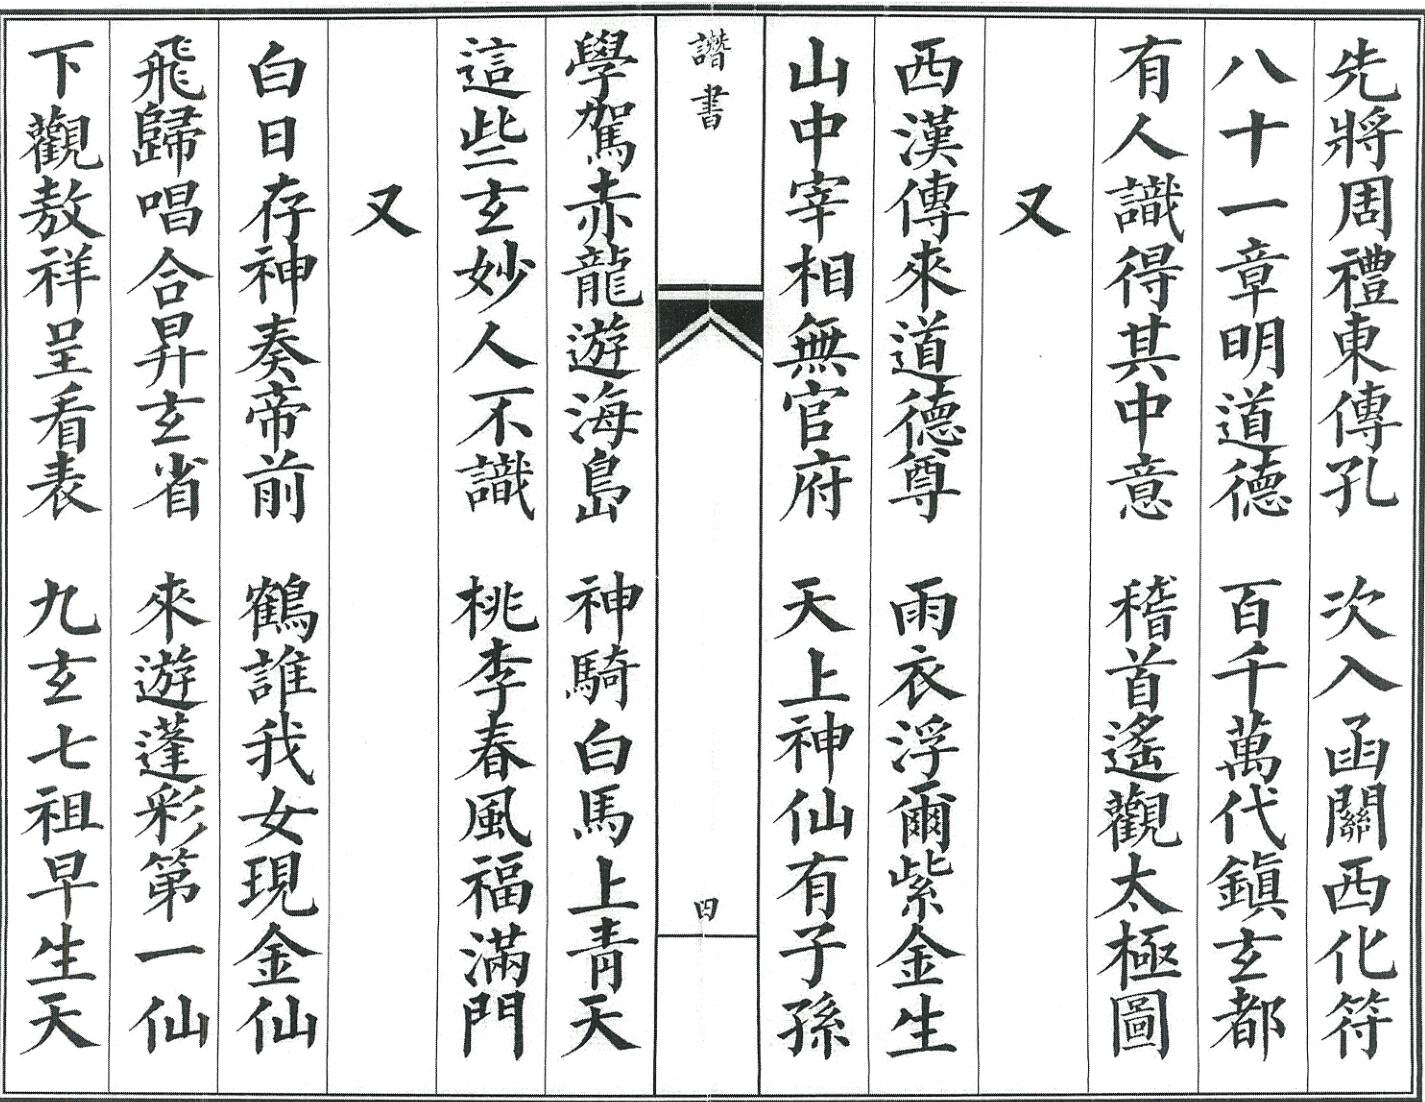 先將周禮東傳孔　次入函關西化符
八十一章明道德　百千萬代鎮玄都
有人識得其中意　稽首遙觀太極圖
又
西漢傳來道德尊　雨衣浮爾紫金生
山中宰相無官府　天上神仙有子孫
譖書
四
學駕赤龍遊海島　神騎白馬上青天
這些玄妙人不識　桃李春風福滿門
又
白日存神奏帝前　鶴誰我女現金仙
飛歸唱合昇玄省　來遊蓬彩第一仙
下觀敖祥呈看表　九玄七祖早生天